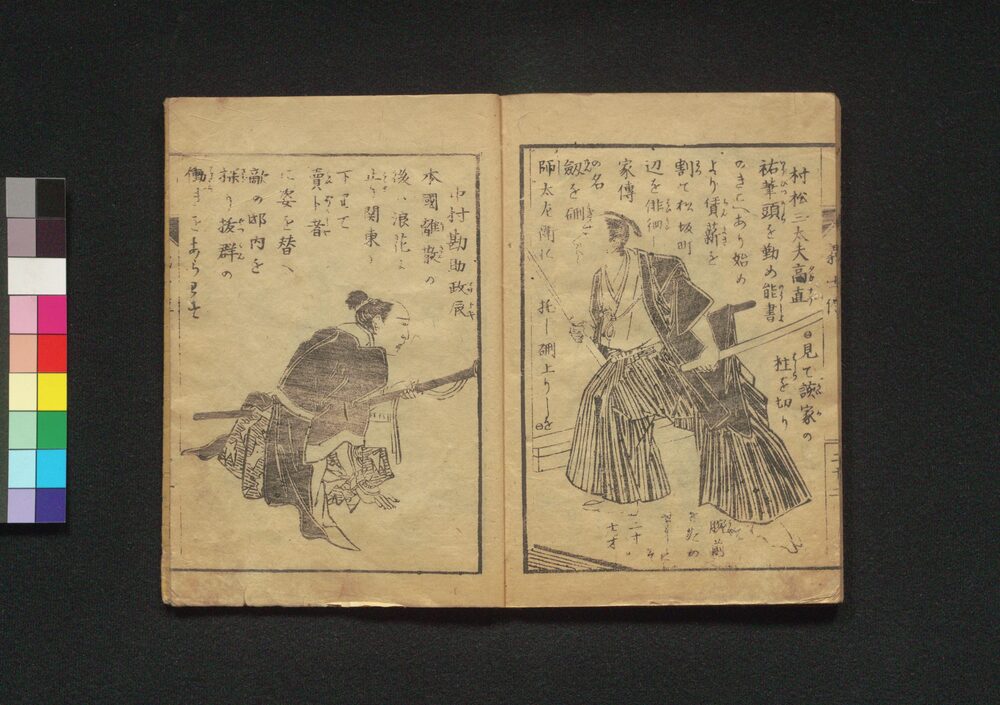 村松三太夫高直
祐筆頭を勤め能書
のきこへあり始め
より債薪を
割て松坂町
辺を俳徊し
家傳
の名
劔を研
師太左衛に
托し研上りしを
見て諌家の
柱を切り
腕前
二十
七才
中村勘助政辰
本國離散の
後浪花に
止り関東に
下りて
賣卜者
に姿を替へ
敵の邸内を
探り抜群の
働きをあらはす